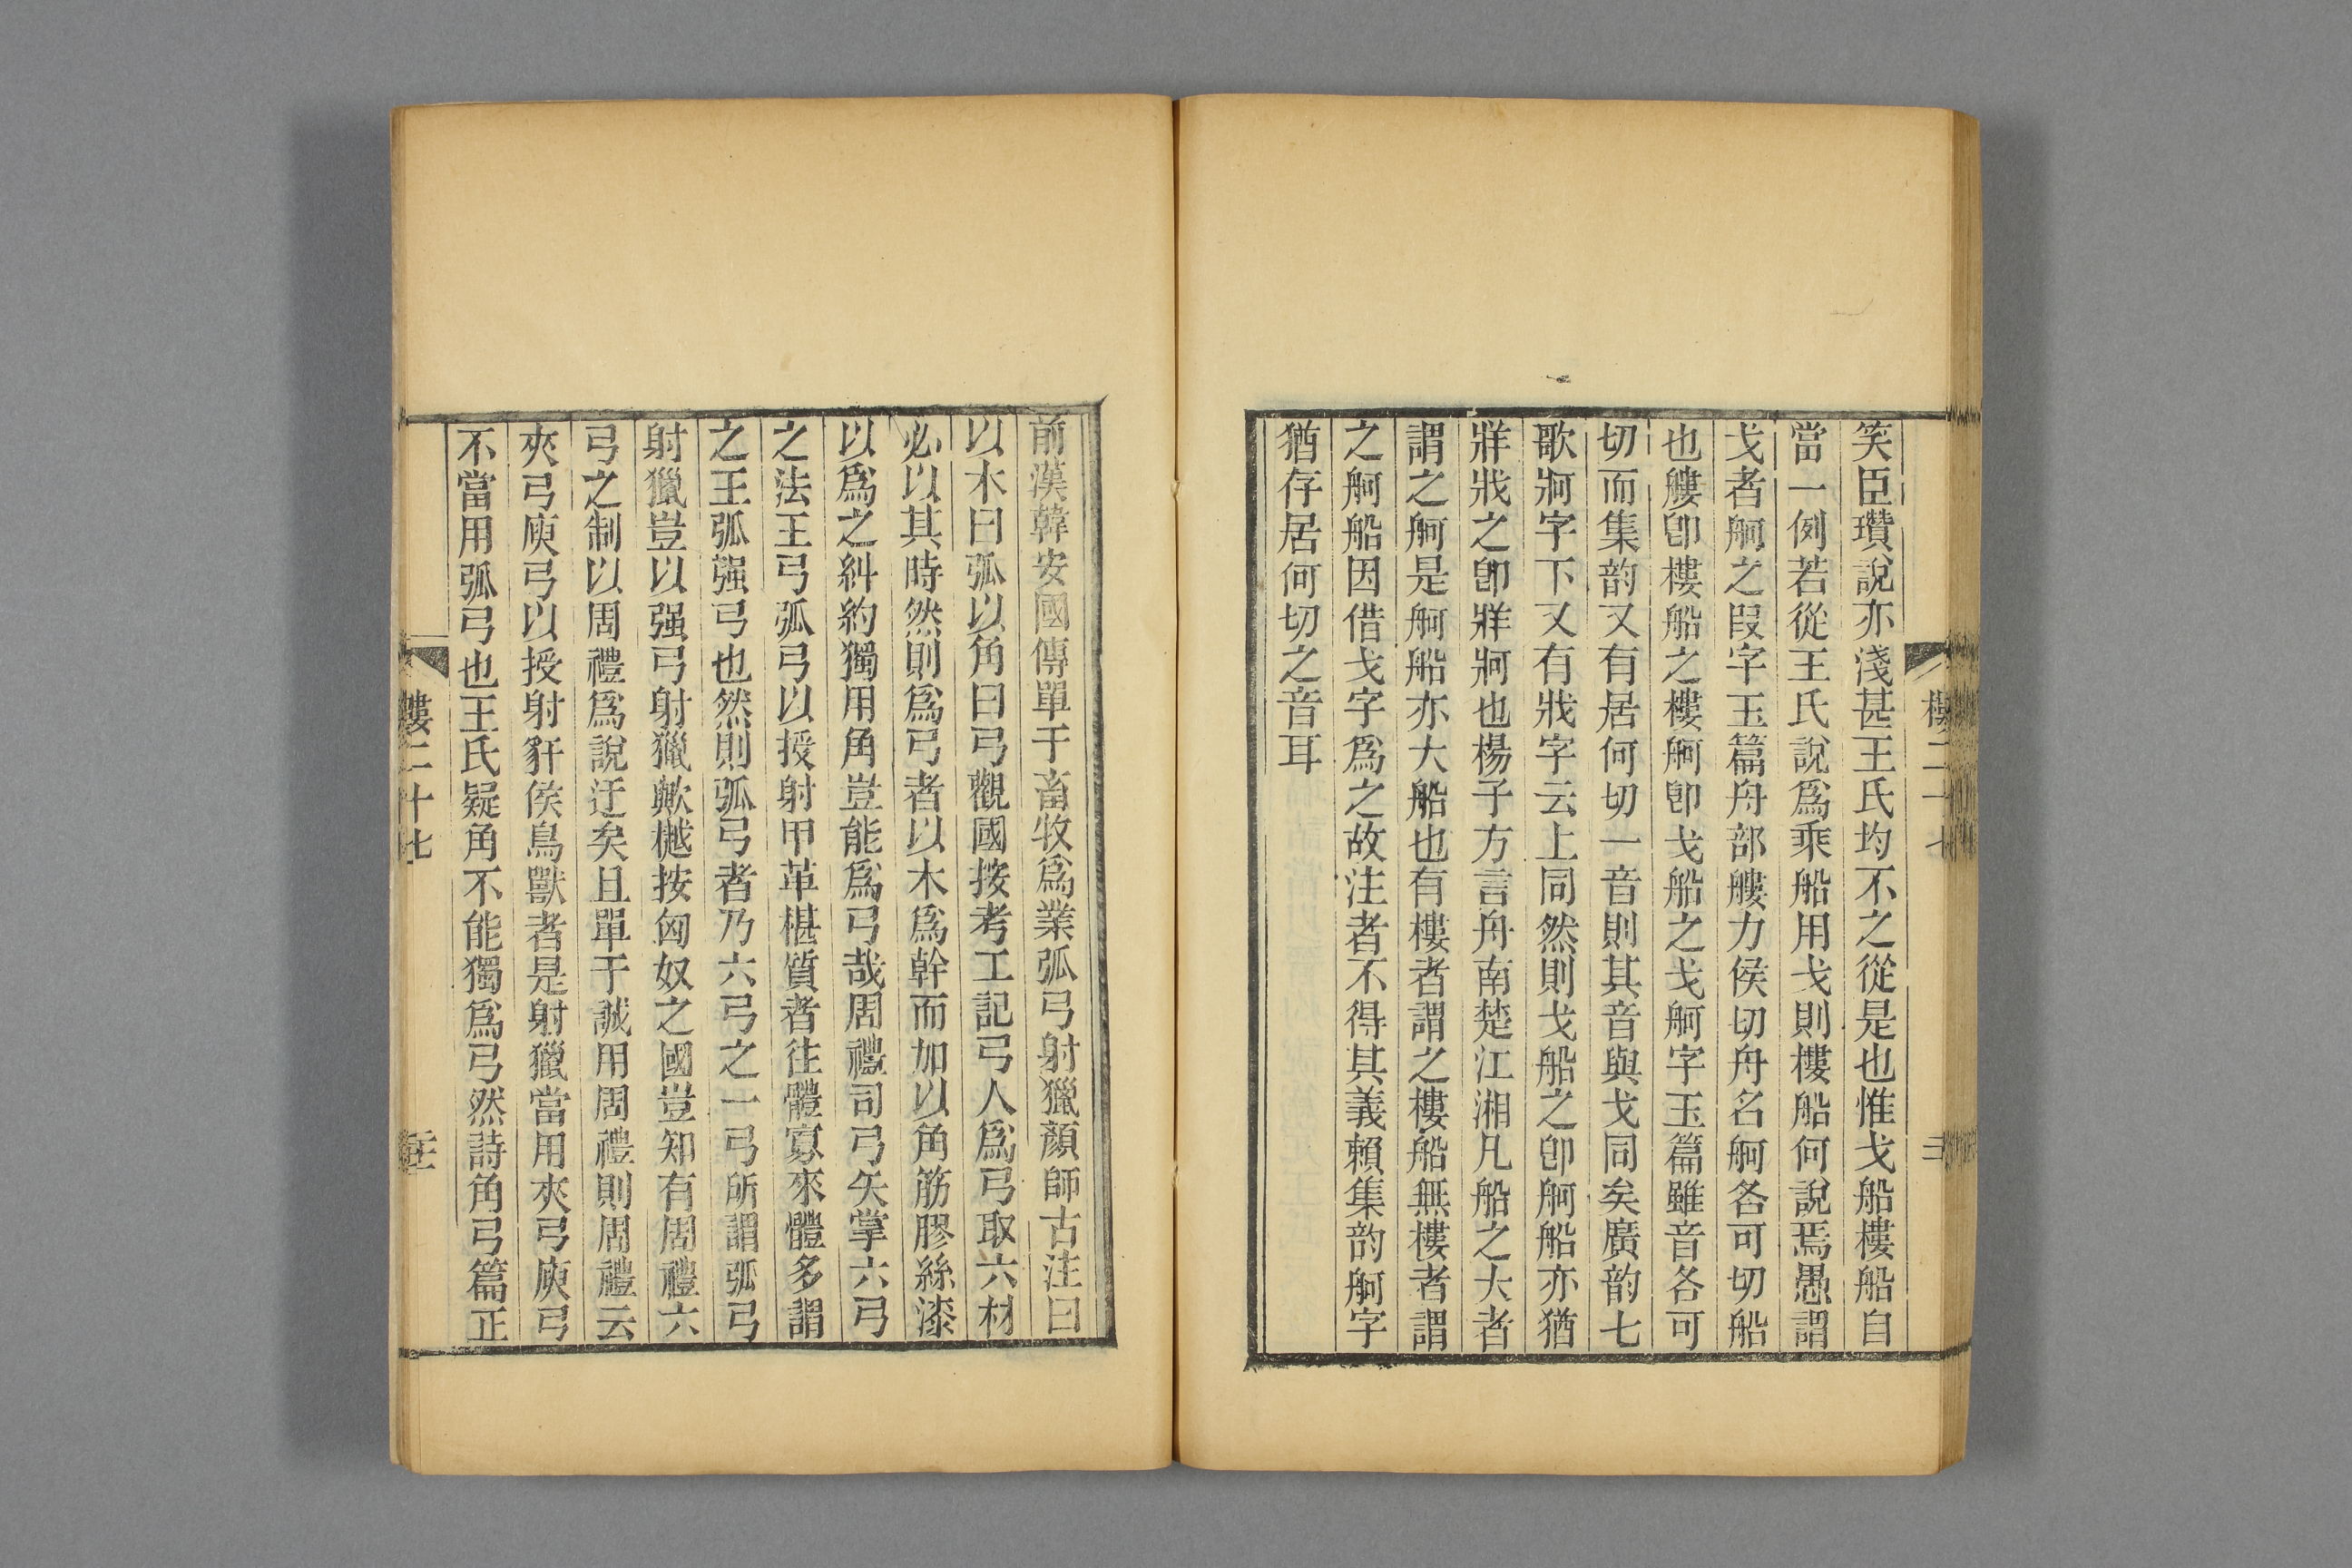 笑臣瓚說亦淺甚王氏均不之從是也惟戈船樓船自
當一例若從王氏說爲乘船用戈則樓船何說焉愚謂
戈者舸之叚字玉篇舟部艛力侯切舟名舸各可切船
也艛卽樓船之樓舸卽戈船之戈舸字玉篇雖音各可
切而集韵又有居何切一音則其音與戈同矣廣韵七
歌牁字下又有戕字云上同然則戈船之卽舸船亦猶
牂戕之卽牂牁也楊子方言舟南楚江湘凡船之大者
謂之舸是舸船亦大船也有樓者謂之樓船無樓者謂
之舸船因借戈字爲之故注者不得其義賴集韵舸字
猶存居何切之音耳
前漢韓安國傳單于畜牧爲業弧弓射獵顏師古注曰
以木曰弧以角曰弓觀國按考工記弓人爲弓取六材
必以其時然則爲弓者以木爲幹而加以角筋膠絲漆
以爲之糾約獨用角豈能爲弓哉周禮司弓矢掌六弓
之法王弓弧弓以授射甲革椹質者往體寡來體多謂
之王弧强弓也然則弧弓者乃六弓之一弓所謂弧弓
射獵豈以强弓射獵歟樾按匈奴之國豈知有周禮六
弓之制以周禮爲說迂矣且單于誠用周禮則周禮云
夾弓庾弓以授射豻侯鳥獸者是射獵當用夾弓庾弓
不當用弧弓也王氏疑角不能獨爲弓然詩角弓篇正
樓二十七